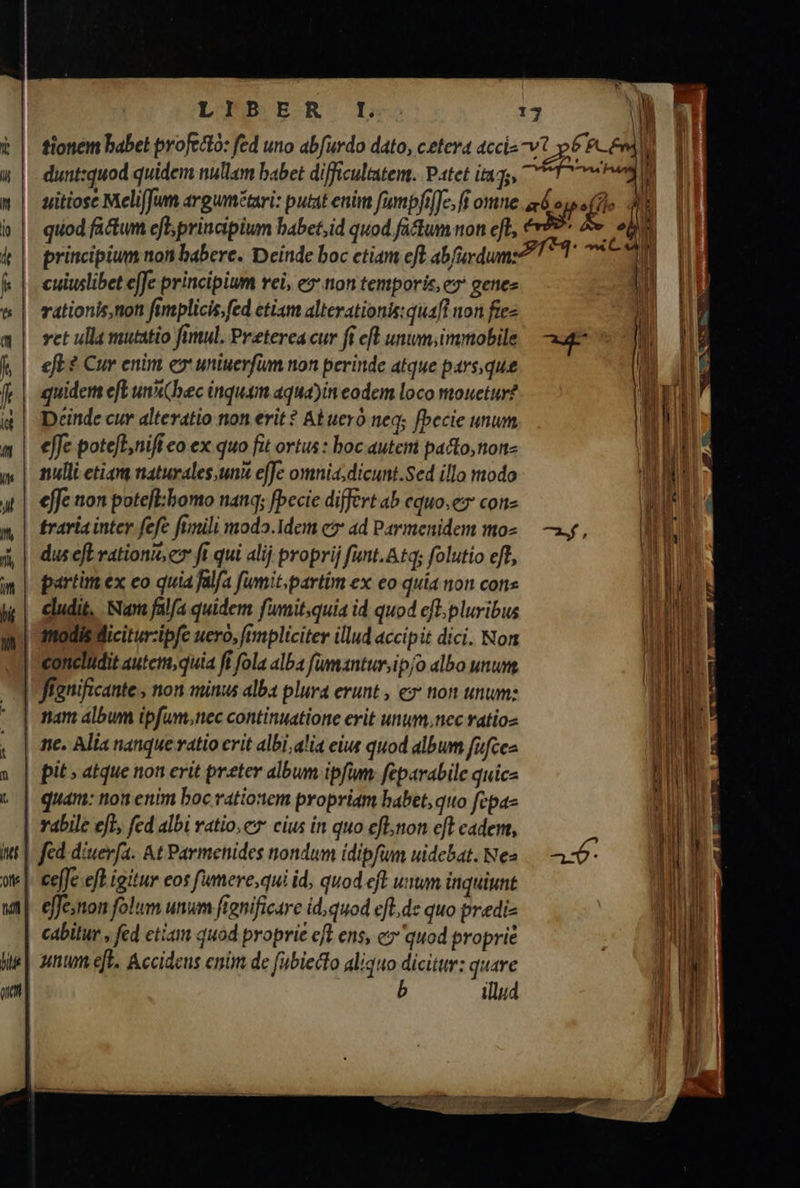 LIBER I. 17
tionem habet profectò: sed uno absurdo dato, cetera acci-
dunt:quod quidem nullam habet difficultatem. Patet itaq;,
uitiose Melissum argumẽtari: putat enim sumpsisse,si omne
quod factum est,principium habet,id quod factum non est,
principium non habere. Deinde hoc etiam est absurdum:
cuiuslibet esse principium rei, & non temporis,& gene-
rationis,non simplicis,sed etiam alterationis:quasi non fie-
ret ulla mutatio simul. Preterea cur si est unum,immobile
est? Cur enim & uniuersum non perinde atque pars,que
quidem est unũ(hæc inquam aqua)in eodem loco mouetur?
Deinde cur alteratio non erit? At uerò neq; specie unum
esse potest,nisi eo ex quo fit ortus: hoc autem pacto,non-
nulli etiam naturales,unũ esse omnia,dicunt.Sed illo modo
esse non potest:homo nanq; specie differt ab equo,& con-
traria inter sese simili modo.Idem & ad Parmenidem mo-
dus est rationũ,& si qui alij proprij sunt.Atq; solutio est,
partim ex eo quia falsa sumit,partim ex eo quia non con-
cludit. Nam falsa quidem sumit,quia id quod est,pluribus
modis dicitur:ipse uerò,simpliciter illud accipit dici. Non
concludit autem,quia si sola alba sumantur,ipso albo unum
significante, non minus alba plura erunt, & non unum:
nam album ipsum,nec continuatione erit unum,nec ratio-
ne. Alia nanque ratio erit albi,alia eius quod album susce-
pit, atque non erit preter album ipsum separabile quic-
quam: non enim hoc rationem propriam habet,quo sepa-
rabile est, sed albi ratio,& eius in quo est,non est eadem,
sed diuersa. At Parmenides nondum idipsum uidebat. Ne-
cesse est igitur eos sumere,qui id, quod est unum inquiunt
esse,non solum unum significare id,quod est,de quo predi-
cabitur, sed etiam quod propriè est ens, & quod propriè
unum est. Accidens enim de subiecto aliquo dicitur: quare
b illud